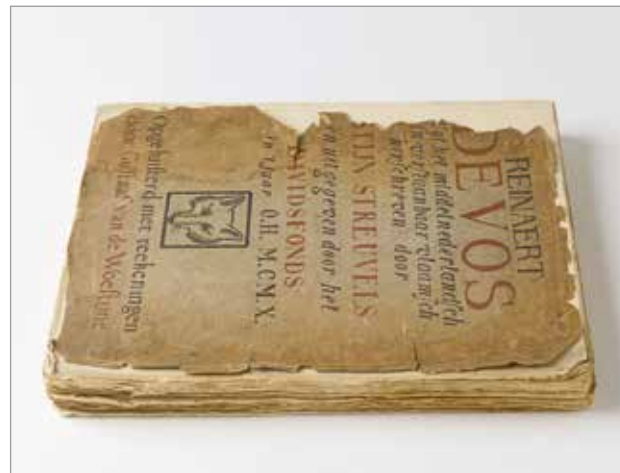 REINAERT
DE VOS
het middelnederlandsch
verstaanbaar vlaamsch
verschreven door
STIJN STREUVELS
en uitgegeven door het
DAVIDSFONDS
in tjaar O.H. M.CM.X.
Opgeluisterd met teekeningen
door Gustaaf Van de Woestijne